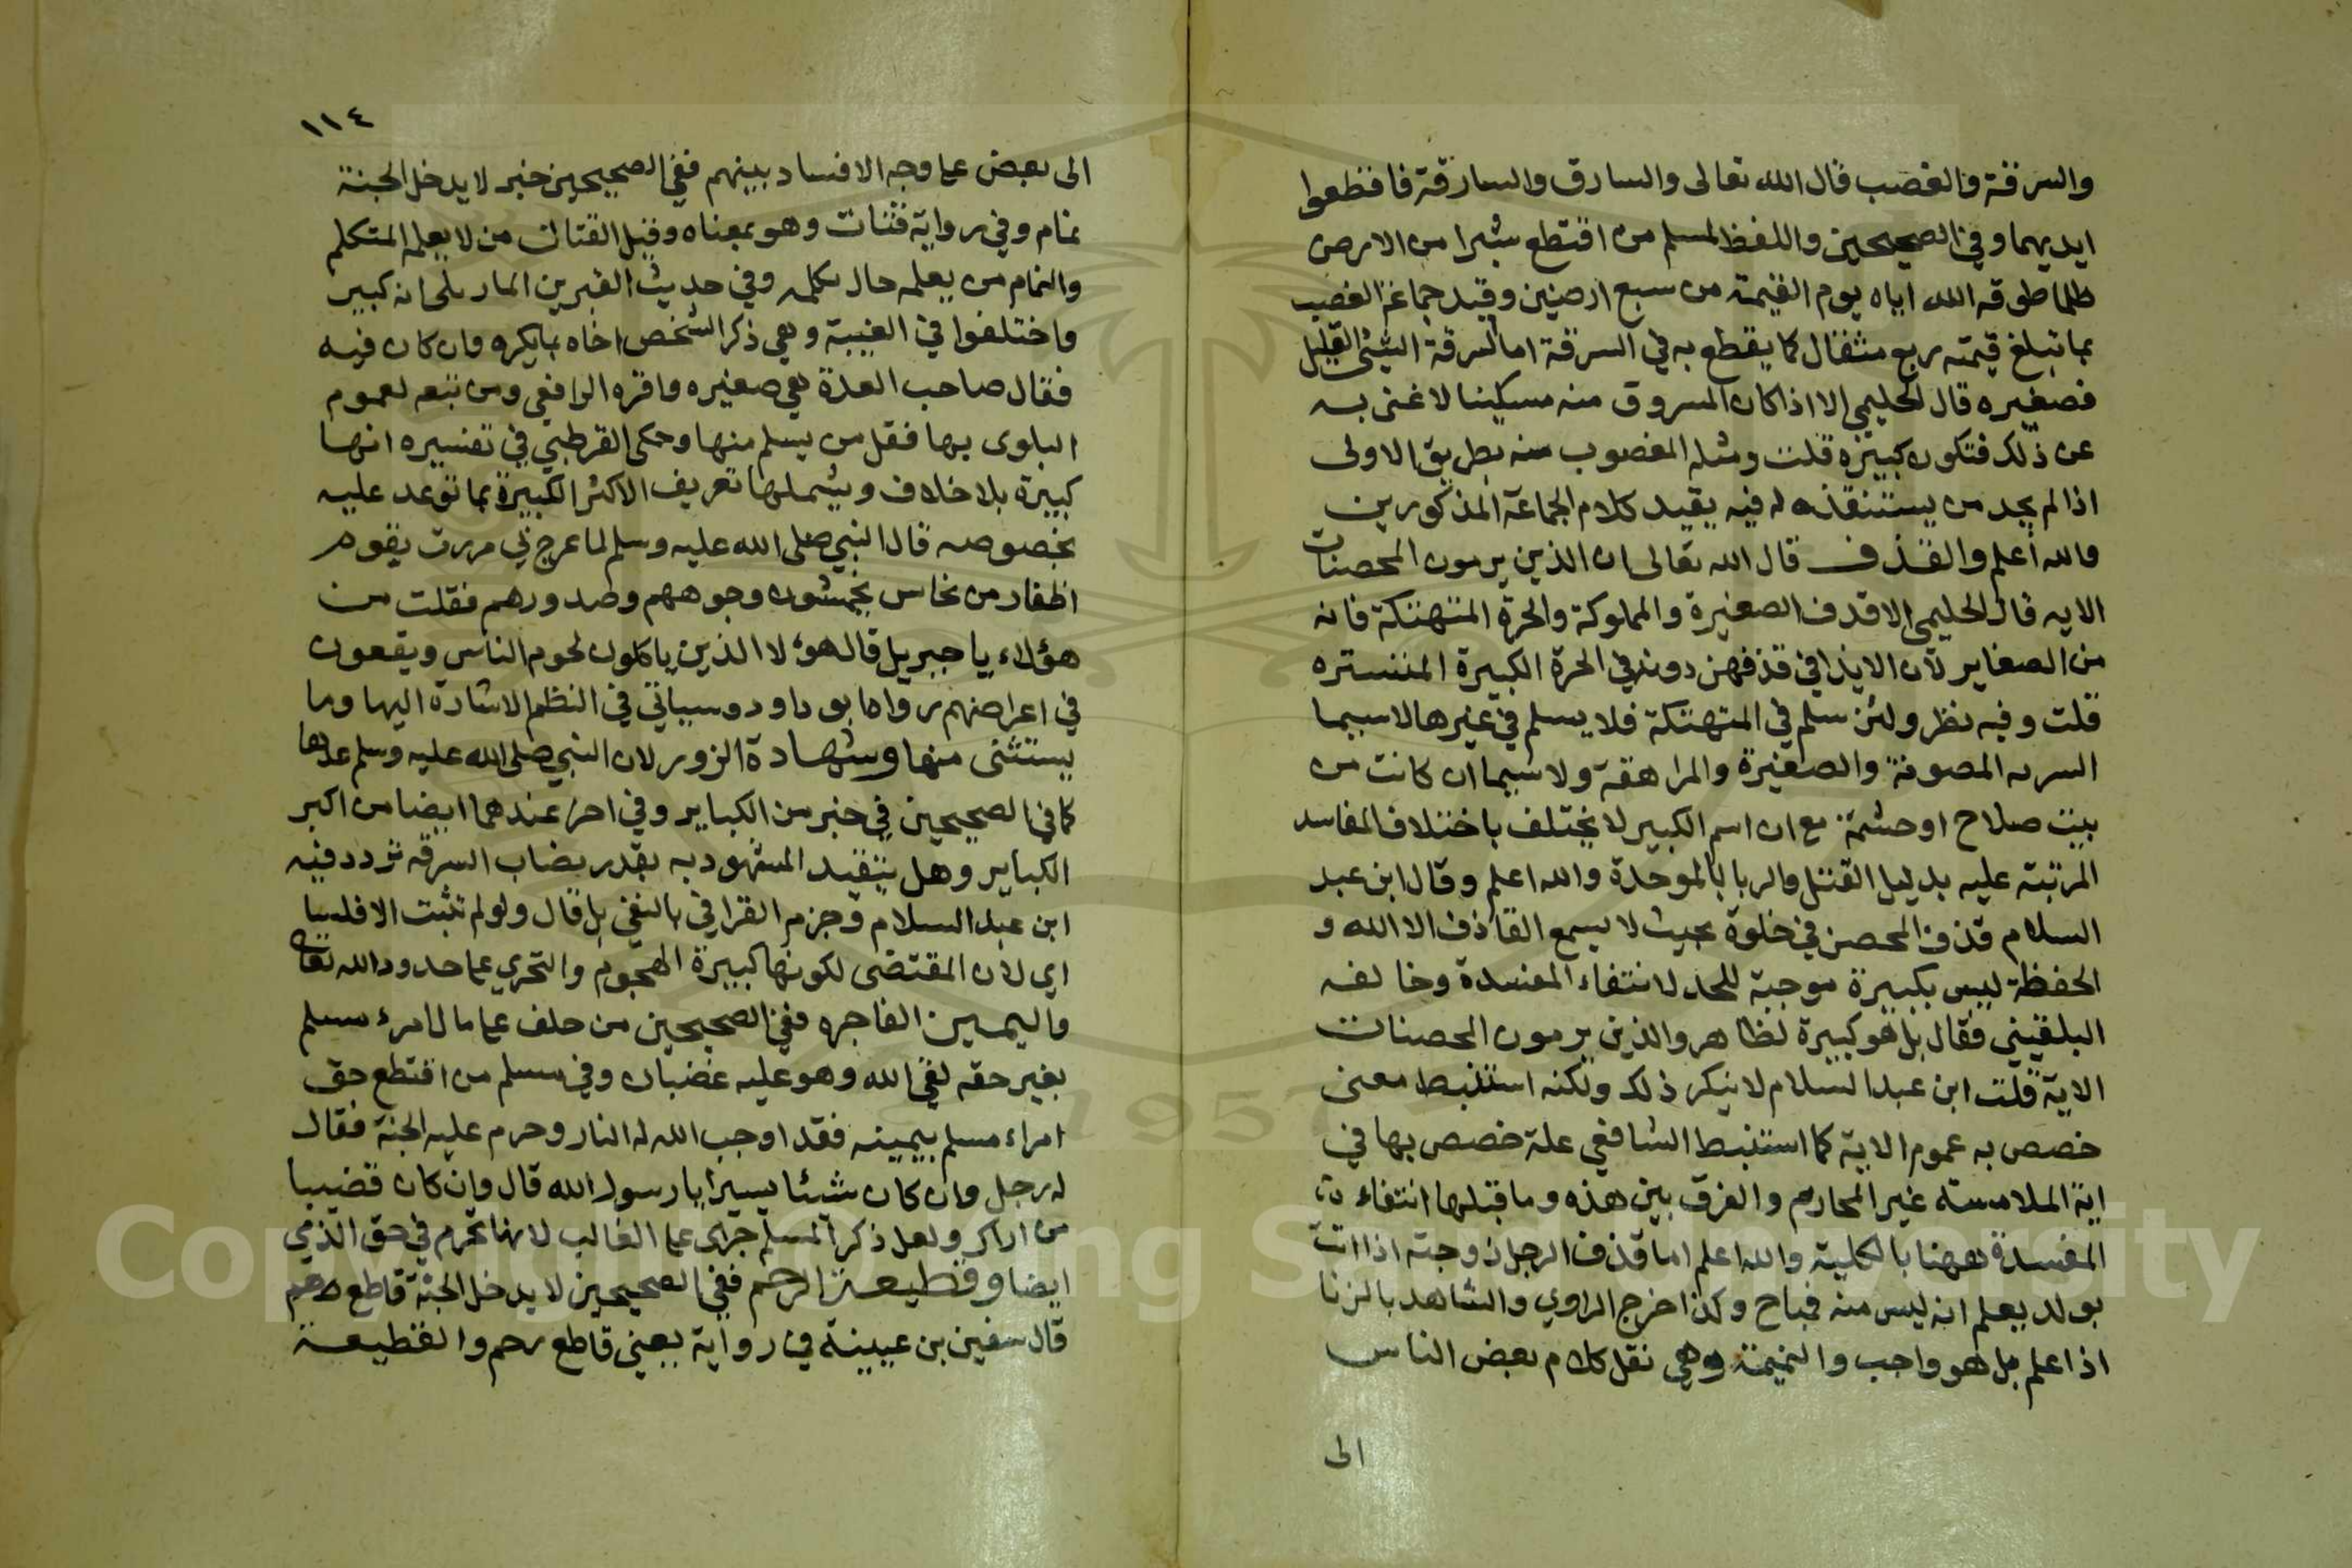 والسرقة والغصب قال الله تعالى والسارق والسارقة فاقطعوا
ايديهما وفي الصحيحين واللفظ لمسلم من اقتطع شبرا من الارض
ظلما طوقه الله اياه يوم القيمة من سبع ارضين وقيد جماعة الغصب
بما تبلغ قيمته ربع مثقال كما يقطع به في السرقة اما السرقة الشئ القليل
فصغيره قال الحليمي الا اذا كان المسروق منه مسكينا لا غنى به
عن ذلك فتكون كبيرة قلت ومثله المغصوب منه بطريق الاولى
اذا لم يجد من يستنقذه له فيه يقيد كلام الجماعة المذكورين
والله أعلم والقذف قال الله تعالى ان الذين يرمون المحصنات
الايه قال الحليمي الا قذف الصغيرة والمملوكة والحرة المتهتكة فانه
من الصغاير لان الايذا في قذفهن دونه في الحرة الكبيرة المتستره
قلت وفيه نظر ولئن سلم في المتهتكة فلا يسلم في غيرها لاسيما
السريه المصونة والصغيرة والمراهقة ولا سيما ان كانت من
بيت صلاح او حشمة مع ان اسم الكبير لا يختلف باختلاف المفاسد
المرتبة عليه بدليل القتل والربا بالموحدة والله اعلم وقال ابن عبد
السلام قذف المحصن في خلوة بحيث لا يسمع القاذف الا الله و
الحفظة ليس بكبيرة موجبة للحد لانتفاء المفسدة وخالفه
البلقيني فقال بل هو كبيرة لظاهر والذين يرمون المحصنات
الاية قلت ابن عبد السلام لا ينكر ذلك ولكنه استنبط معنى
خصص به عموم الاية كما استنبط الشافعي علة خصص بها في
اية الملامسة غير المحارم والفرق بين هذه وما قبلها انتفاء
المفسدة ههنا بالكلية والله اعلم اما قذف الرجل زوجته اذا اتت
بولد يعلم انه ليس منه فمباح وكذا اخرج الراوي والشاهد بالزنا
اذا علم بل هو واجب والنميمة وهي نقل كلام بعض الناس
الى
١١٤
الى بعض على وجه الافساد بينهم ففي الصحيحين خبر لا يدخل الجنة
نمام وفي رواية قتات وهو بمعناه وقيل القتات من لا يعلم المتكلم
والنمام من يعلمه حال تكلمه وفي حديث القبرين المار بلى انه كبير
واختلفوا في الغيبة وهي ذكر الشخص اخاه بما يكره وان كان فيه
فقال صاحب العدة هي صغيره واقره الرافعي ومن تبعه لعموم
البلوى بها فقل من يسلم منها وحكى القرطبي في تفسيره انها
كبيرة بلا خلاف ويشملها تعريف الاكثر الكبيرة بما توعد عليه
بخصوصه قال النبي صلى الله عليه وسلم لما عرج بي مررت بقوم
اظفار من نحاس يخمشون وجوههم وصدورهم فقلت من
هؤلاء يا جبريل قال هؤلا الذين ياكلون لحوم الناس ويقعون
في اعراضهم رواه ابو داود وسياتي في النظم الاشارة اليها وما
يستثنى منها وشهادة الزور لان النبي صلى الله عليه وسلم عدها
كما في الصحيحين في خبر من الكباير وفي اخر عندهما ايضا من اكبر
الكباير وهل يتقيد المشهود به بقدر نصاب السرقه تردد فيه
ابن عبد السلام وجزم القرافي بالنفي بل قال ولو لم تثبت الا فلسا
اي لان المقتضى لكونها كبيرة الهجوم والتجري على حدود الله تعالى
واليمين الفاجره ففي الصحيحين من حلف على مال امرء مسلم
بغير حقه لقي الله وهو عليه غضبان وفي مسلم من اقتطع حق
امراء مسلم بيمينه فقد اوجب الله له النار وحرم عليه الجنة فقال
له رجل وان كان شيئا يسيرا يا رسول الله قال وان كان قضيبا
من اراك ولعل ذكر المسلم جرى على الغالب لانها تحرم في حق الذمي
ايضا وقطيعة الرحم ففي الصحيحين لا يدخل الجنة قاطع رحم
قال سفين بن عيينة في رواية يعني قاطع رحم والقطيعة
Copyright © King Saud University
1957